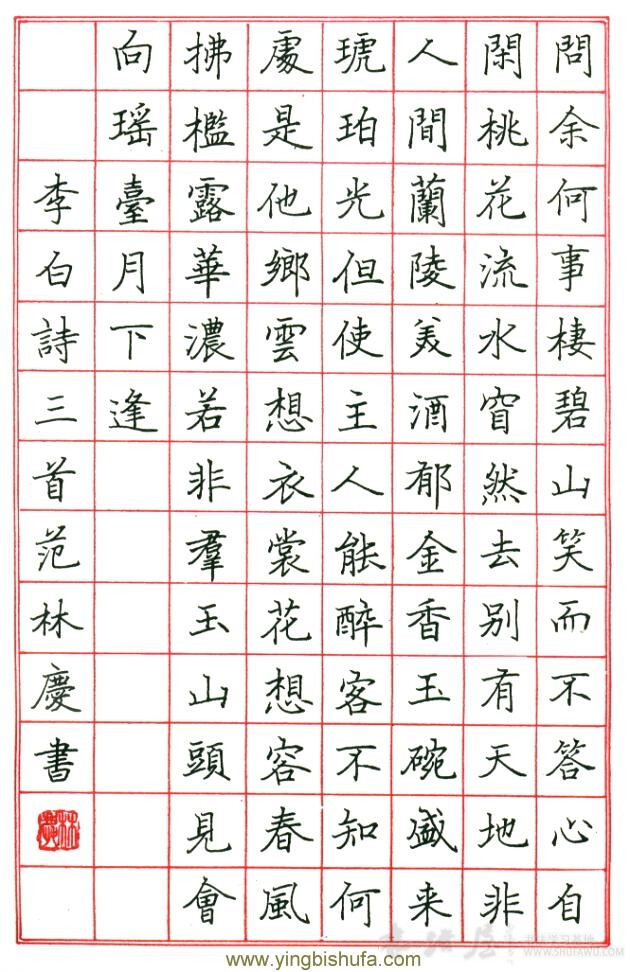 問余何事棲碧山笑而不答心自
閑桃花流水窅然去别有天地非
人間蘭陵美酒郁金香玉碗盛来
琥珀光但使主人能醉客不知何
處是他鄉雲想衣裳花想容春風
拂檻露華濃若非羣玉山頭見會
向瑶臺月下逢
李白詩三首范林慶書
林慶
www.yingbishufa.com
书法学习基地
WWW.SHUFAWU.COM